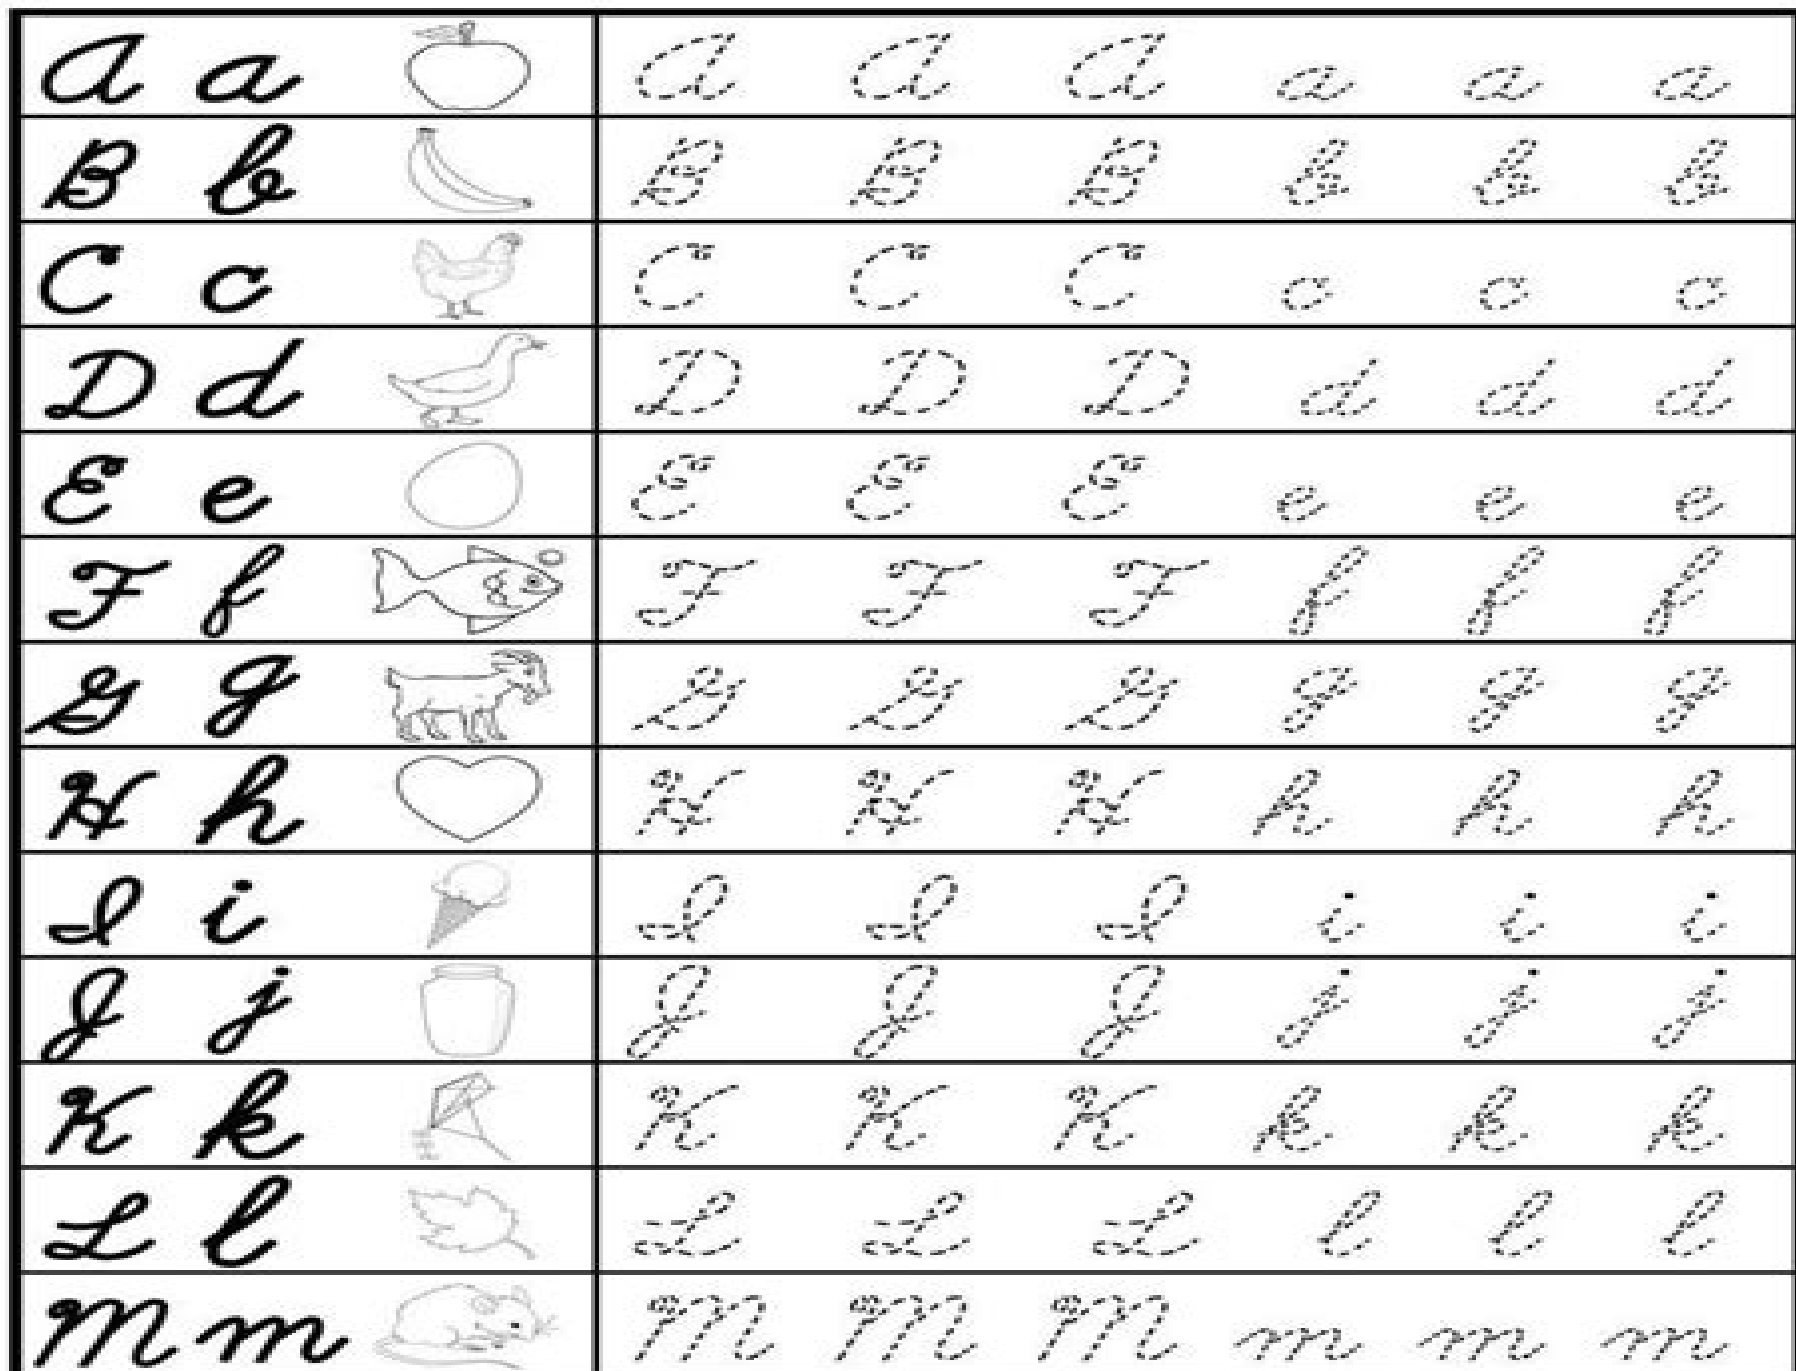 A a A A A a a a
B b B B B b b b
C c C C C c c c
D d D D D d d d
E e E E E e e e
F f F F F f f f
G g G G G g g g
H h H H H h h h
I i I I I i i i
J j J J J j j j
K k K K K k k k
L l L L L l l l
M m M M M m m m